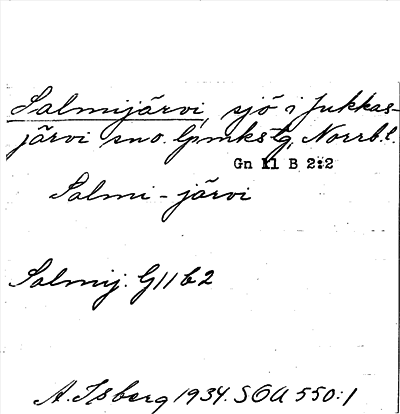 Salmijärvi, sjö i Jukkas-
järvi sno. lpmkstg, Norrb.l.
Gn 11 B 2:2
Salmi-järvi
Salmij. G11b2
A. Isberg 1934. SOA 550:1